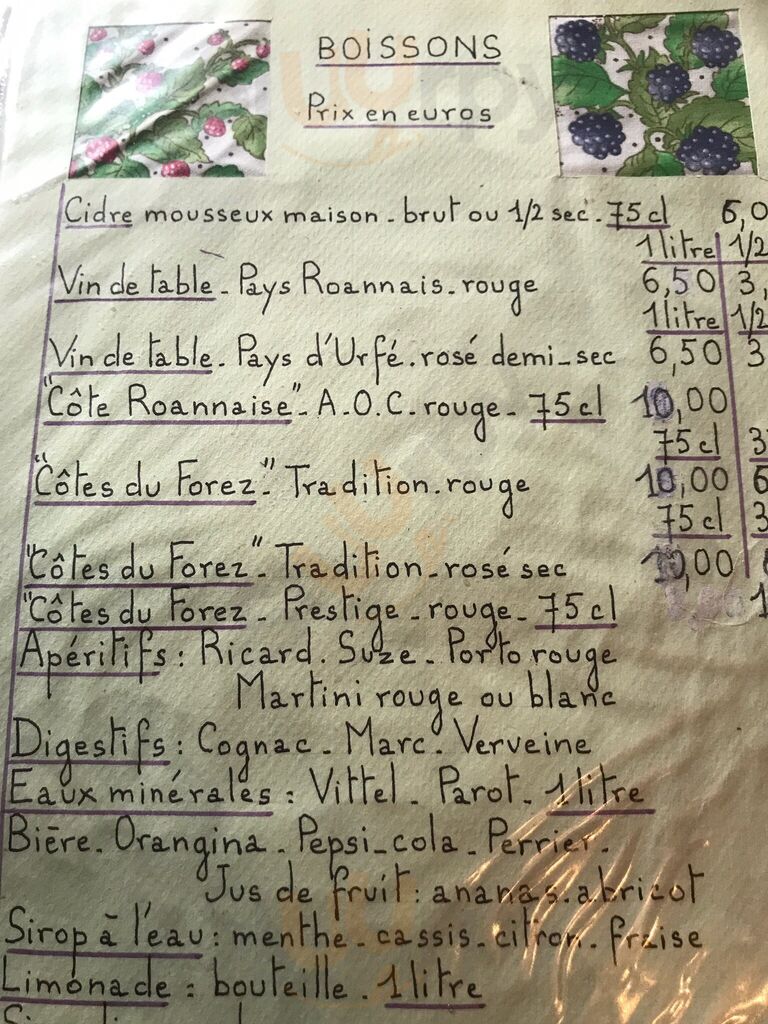 BOISSONS
Prix en euros
Cidre mousseux maison - brut ou 1/2 sec - 75 cl 6,0
1 litre 1/2
Vin de table - Pays Roannais - rouge 6,50 3,
1 litre 1/2
Vin de table - Pays d'Urfé - rosé demi-sec 6,50 3
"Côte Roannaise" - A.O.C - rouge - 75 cl 10,00
75 cl 3
"Côtes du Forez" Tradition - rouge 10,00 6
75 cl 3
"Côtes du Forez" - Tradition - rosé sec 10,00
"Côtes du Forez - Prestige - rouge - 75 cl 1
Apéritifs : Ricard - Suze - Porto rouge
Martini rouge ou blanc
Digestifs : Cognac - Marc - Verveine
Eaux minérales : Vittel - Parot - 1 litre
Bière - Orangina - Pepsi-cola - Perrier -
Jus de fruit : ananas - abricot
Sirop à l'eau : menthe - cassis - citron - fraise
Limonade : bouteille - 1 litre